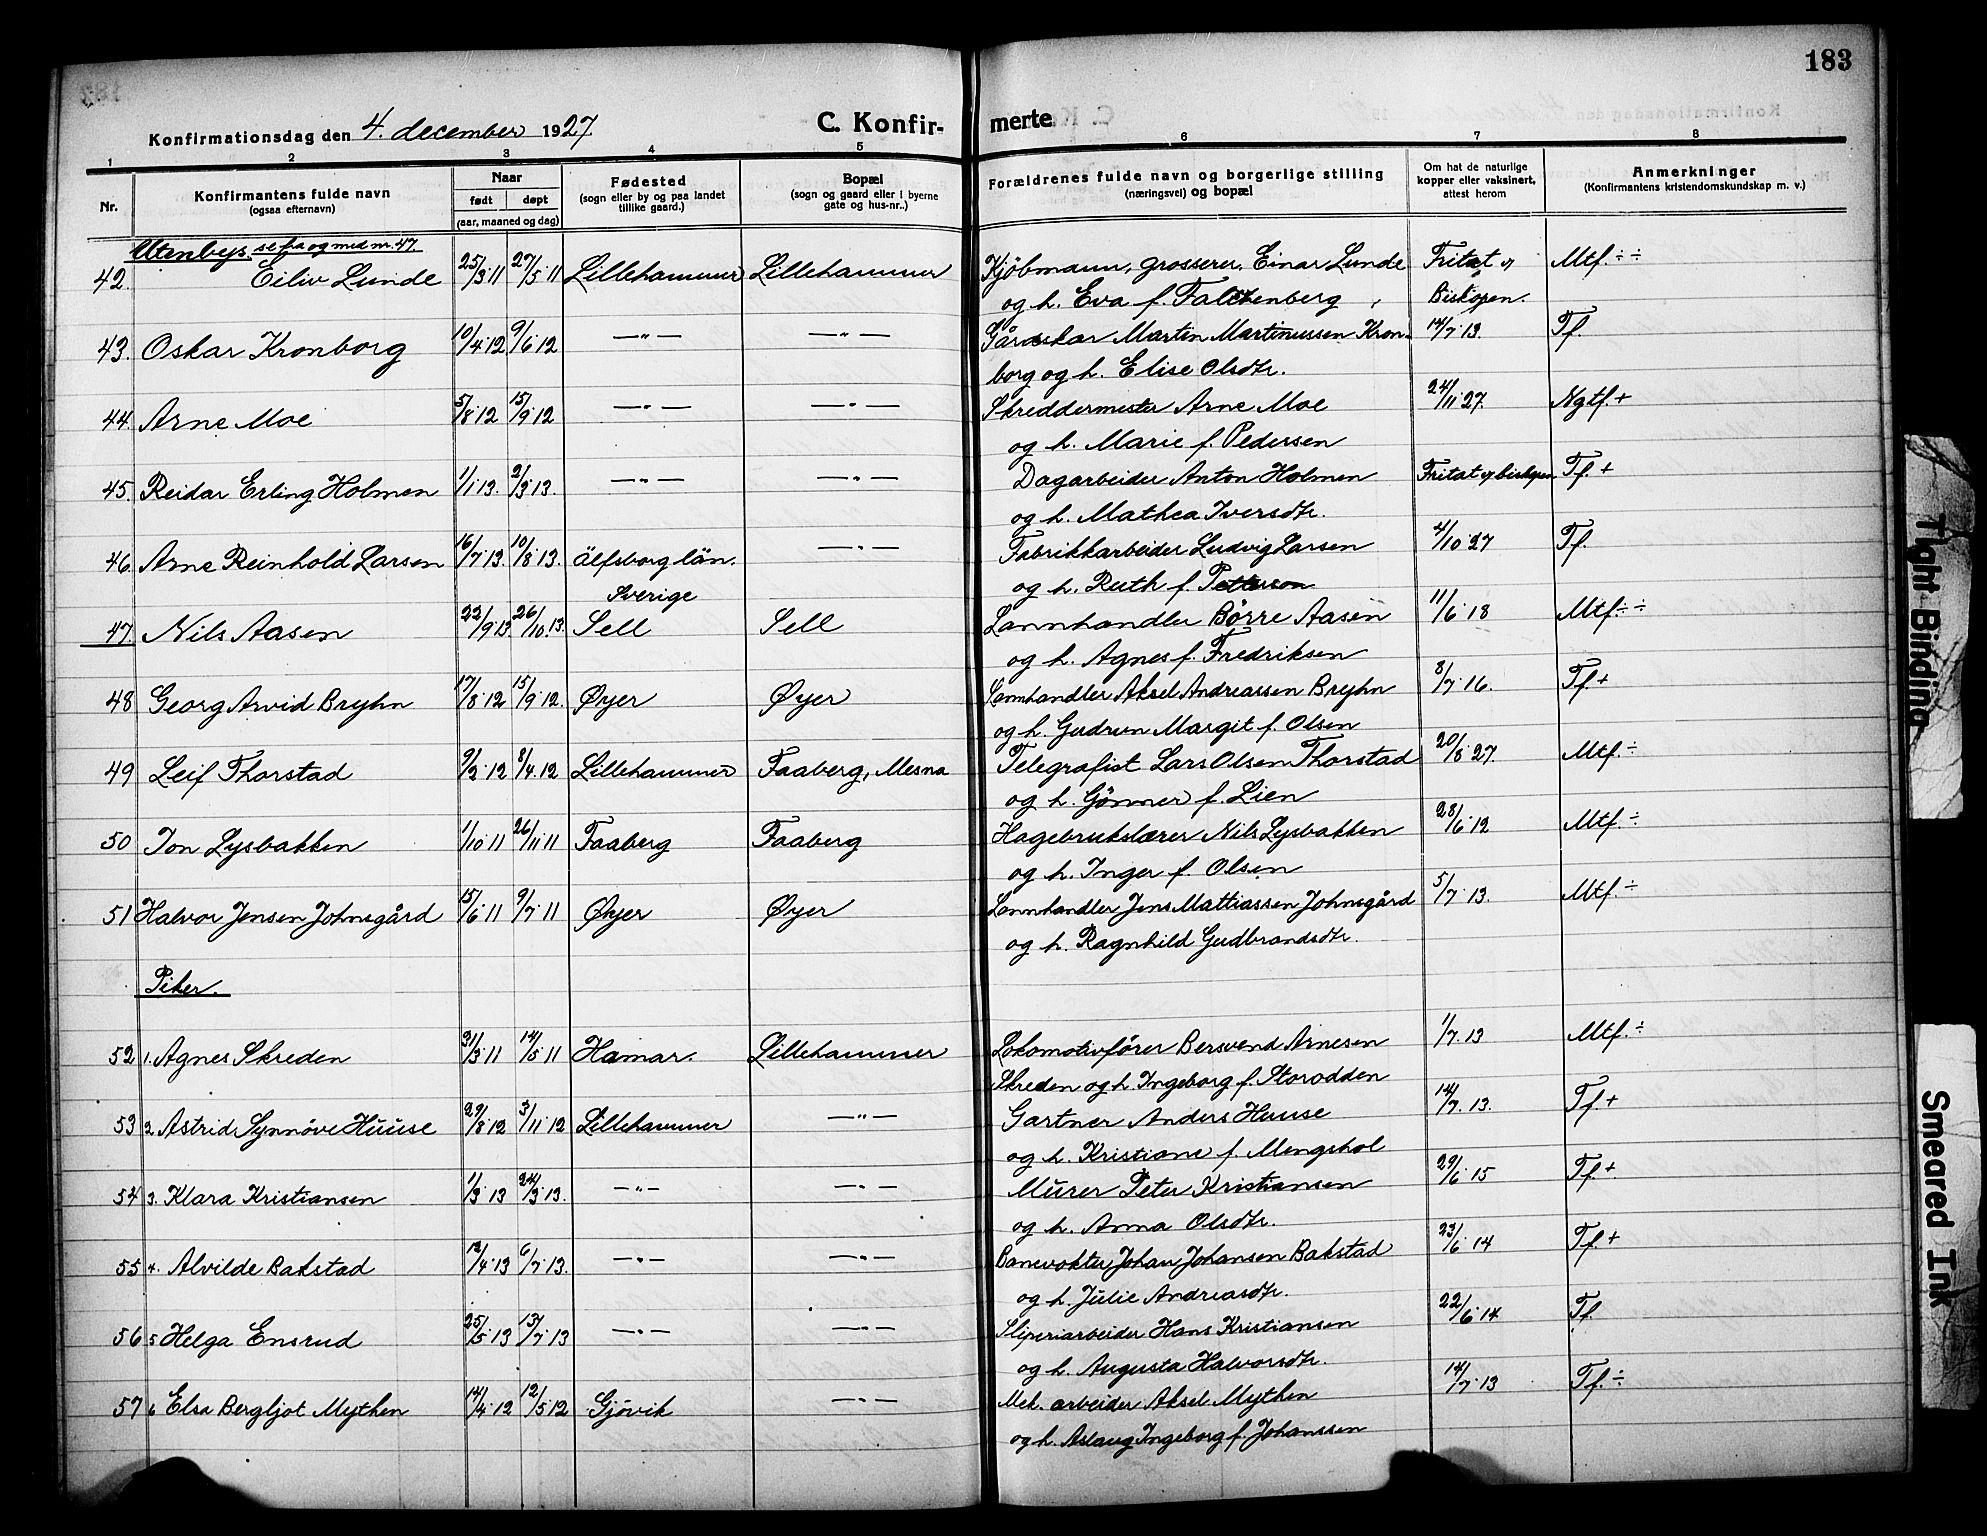 183
Konfirmationsdag den 4. december 1927.
C. Konfirmerte
1 2 3 4 5 6 7 8
Nr.
Konfirmantens fulde navn
(ogsaa efternavn)
Naar
født døpt
(aar, maaned og dag)
Fødested
(sogn eller by og paa landet
tillike gaard.)
Bopæl
(sogn og gaard eller i byerne
gate og hus-nr..)
Forældrenes fulde navn og borgerlige stilling
(næringsvei) og bopæl
Om hat de naturlige
kopper eller vaksinert,
attest herom
Anmerkninger
(Konfirmantens kristendomskundskap m. v.)
Utenbys. se fra og med nr. 47.
42. Eiliv Lunde 25/3 11 27/5 11 Lillehammer Lillehammer Kjøbmann, grosserer, Einar Lunde Fritat af Mtf. ÷ ÷
og h. Eva f. Falchenberg Biskopen.
43. Oskar Kronborg 10/4 12 9/6 12 —"— —"— Gårdskar Martin Martinussen Kron- 14/7 13. Tf.
borg og h. Elise Olsdtr.
44. Arne Moe 5/8 12 15/9 12 —"— —"— Skreddermester Arne Moe 24/11 27. Ngtf. +
og h. Marie f. Pedersen
45. Reidar Erling Holmen 1/1 13. 2/3 13. —"— —"— Dagarbeider Anton Holmen Fritat af biskopen Tf. +
og h. Mathea Iversdtr.
46. Arne Reinhold Larsen 16/7 13. 10/8 13. Älfsborg län. —"— Fabrikkarbeider Ludvig Larsen 4/10 27 Tf.
Sverige og h. Ruth f. Petterson
47. Nils Aasen 22/9 13 26/10 13. Sell Sell Lannhandler Børre Aasen 11/6 18 Mtf. ÷ ÷
og h. Agnes f. Fredriksen
48 Georg Arvid Bryhn 17/8 12 15/9 12. Øyer Øyer Lannhandler Aksel Andreassen Bryhn 8/7 16. Tf. +
og h. Gudrun Margit f. Olsen
49 Leif Thorstad 9/3 12 8/4 12 Lillehammer Faaberg, Mesna Telegrafist Lars Olsen Thorstad 20/8 27. Mtf. ÷
og h. Gönner f. Lien
50 Jon Lysbakken 1/10 11 26/11 11 Faaberg Faaberg Hagebrukslærer Nils Lysbakken 28/6 12 Mtf. ÷
og h. Inger f. Olsen
51 Halvor Jensen Johnsgård 15/6 11 9/7 11 Øyer Øyer Lannhandler Jens Mattiassen Johnsgård 5/7 13. Mtf. ÷
og h. Ragnhild Gudbrandsdtr.
Piker.
52 1. Agnes Skreden 31/3 11 14/5 11 Hamar. Lillehammer Lokomotivfører Bersvend Arnesen 1/7 13 Mtf. ÷
Skreden og h. Ingeborg f. Storodden
53 2. Astrid Synnöve Huuse 29/8 12 3/11 12 Lillehammer —"— Gartner Anders Huuse 14/7 13. Tf. +
og h. Kristiane f. Mengshol
54 3. Klara Kristiansen 1/3 13 24/3 13. —"— —"— Murer Peter Kristiansen 29/6 15 Tf. +
og h. Anna Olsdtr.
55 4. Alvilde Bakstad 12/4 13 6/7 13. —"— —"— Banevokter Johan Johansen Bakstad 23/6 14 Tf. +
og h. Julie Andreasdtr.
56 5 Helga Ensrud 25/5 13 13/7 13 —"— —"— Sliperiarbeider Hans Kristiansen 22/6 14 Tf.
og h. Augusta Halvorsdtr.
57 6 Elsa Bergljot Mythen 14/4 12 12/5 12 Gjövik —"— Mek. arbeider Aksel Mythen 14/7 13 Tf. ÷
og h. Aslaug Ingeborg f. Johanssen
Tight Binding
Smeared Ink